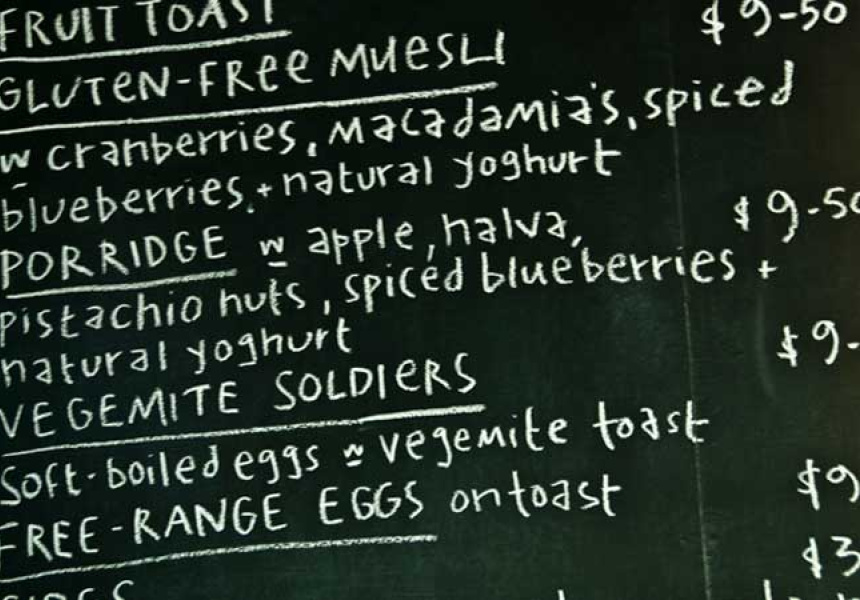 FRUIT TOAST
$9-50
GLUTEN-FREE MUESLI
w cranberries, macadamia's, spiced
blueberries, + natural yoghurt
$9-50
PORRIDGE w apple, halva,
pistachio nuts, spiced blueberries +
natural yoghurt
$9-
VEGEMITE SOLDIERS
Soft-boiled eggs w vegemite toast
$9
FREE-RANGE EGGS on toast
$3